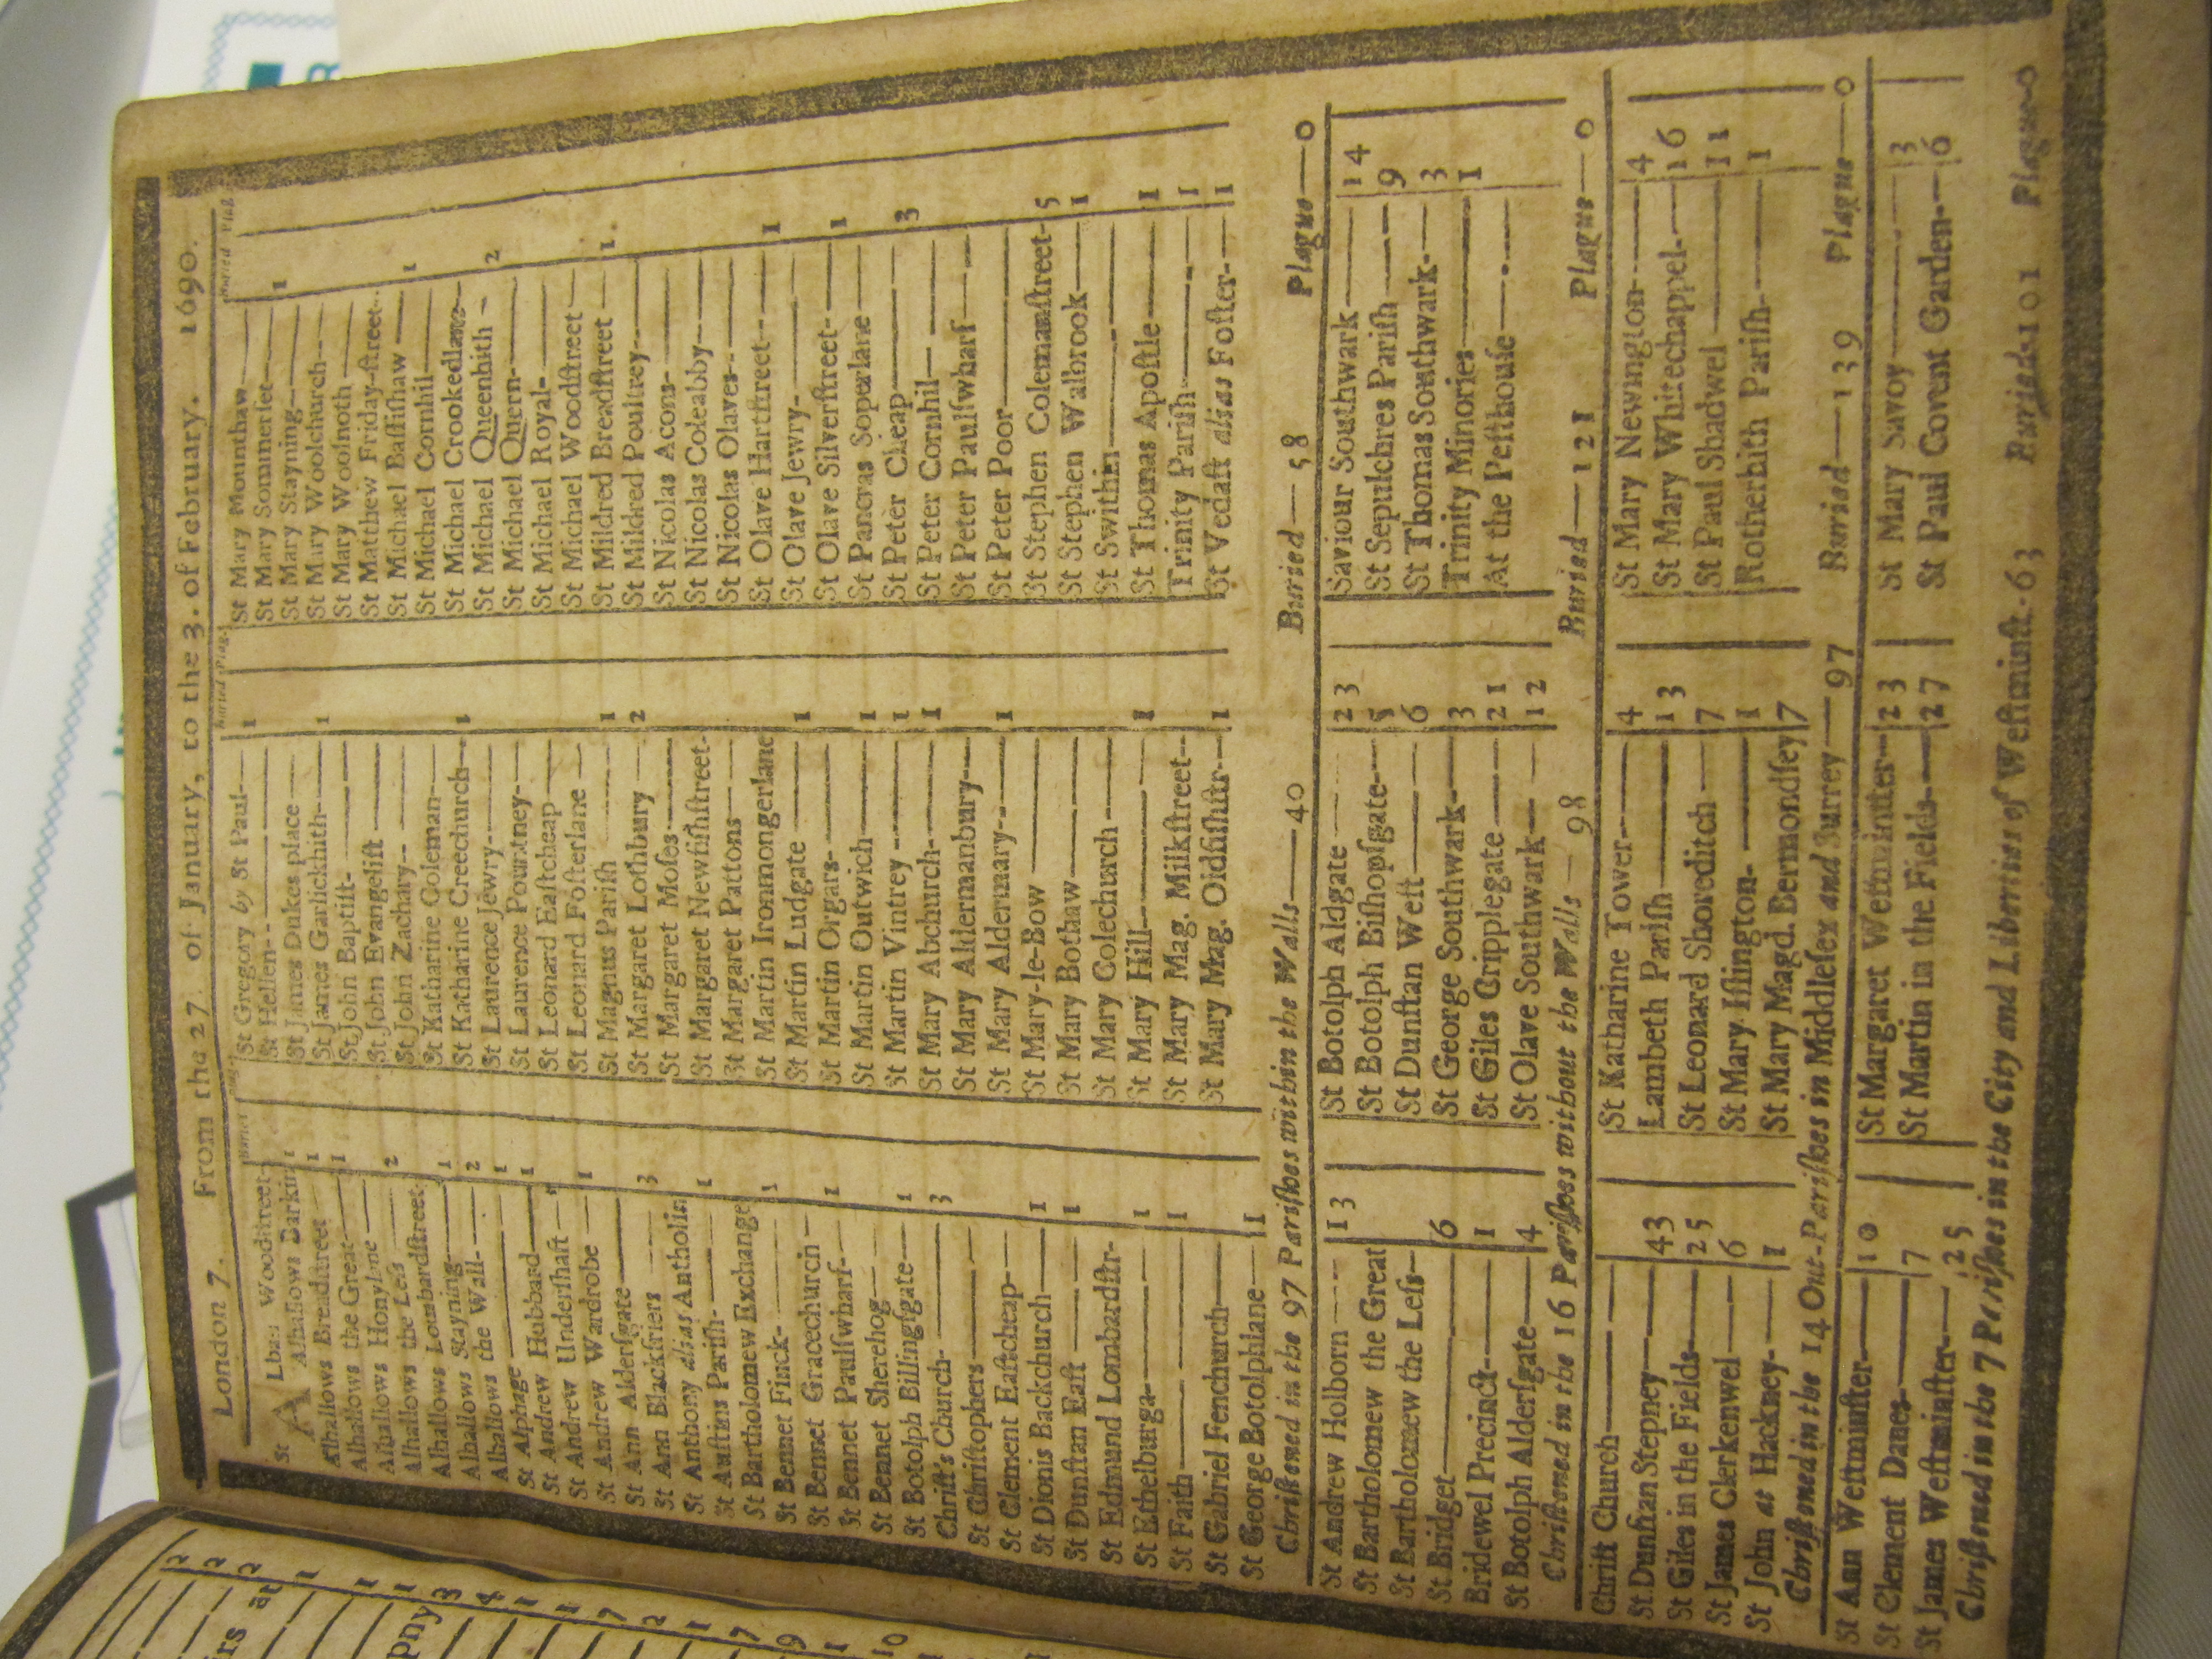 London 7. From the 27. of January, to the 3. of February. 1690.
Buried Plag.
St Alban Woodſtreet
Alhallows Barkin 1
Alhallows Breadſtreet 1
Alhallows the Great 1
Alhallows Honylane
Alhallows the Leſs 2
Alhallows Lombardſtreet
Alhallows Stayning 1
Alhallows the Wall 2
St Alphage 1
St Andrew Hubbard 1
St Andrew Underſhaft
St Andrew Wardrobe 1
St Ann Alderſgate
St Ann Blackfriers 3
St Anthony alias Antholin
St Auſtins Pariſh 1
St Bartholomew Exchange
St Bennet Finck 1
St Bennet Gracechurch
St Bennet Paulſwharf 1
St Bennet Sherehog
St Botolph Billingſgate 1
Chriſt's Church 3
St Chriſtophers
St Clement Eaſtcheap
St Dionis Backchurch 1
St Dunſtan Eaſt 1
St Edmund Lombardſtr
St Ethelburga 1
St Faith 1
St Gabriel Fenchurch
St George Botolphlane 1
Buried Plag.
St Gregory by St Paul 1
St Hellen
St James Dukes place
St James Garlickhith 1
St John Baptiſt
St John Evangeliſt
St John Zachary
St Katharine Coleman
St Katharine Creechurch 1
St Laurence Jewry
St Laurence Pountney
St Leonard Eaſtcheap
St Leonard Foſterlane
St Magnus Pariſh 1
St Margaret Lothbury 2
St Margaret Moſes
St Margaret Newfiſhſtreet
St Margaret Pattons
St Martin Ironmongerlane
St Martin Ludgate 1
St Martin Orgars
St Martin Outwich 1
St Martin Vintrey 1
St Mary Abchurch 1
St Mary Aldermanbury
St Mary Aldermary 1
St Mary-le-Bow
St Mary Bothaw
St Mary Colechurch
St Mary Hill 1
St Mary Mag. Milkſtreet
St Mary Mag. Oldfiſhſtr 1
Buried Plag
St Mary Mounthaw
St Mary Sommerſet 1
St Mary Stayning
St Mary Woolchurch
St Mary Woolnoth
St Mathew Friday-ſtreet
St Michael Baſſiſhaw 1
St Michael Cornhil
St Michael Crookedlane
St Michael Queenhith 2
St Michael Quern
St Michael Royal
St Michael Woodſtreet
St Mildred Breadſtreet 1
St Mildred Poultrey
St Nicolas Acons
St Nicolas Coleabby
St Nicolas Olaves
St Olave Hartſtreet 1
St Olave Jewry
St Olave Silverſtreet 1
St Pancras Soperlane
St Peter Cheap 3
St Peter Cornhil
St Peter Paulſwharf
St Peter Poor
St Stephen Colemanſtreet 5
St Stephen Walbrook 1
St Swithin
St Thomas Apoſtle 1
Trinity Pariſh 1
St Vedaſt alias Foſter 1
Chriſtened in the 97 Pariſhes within the Walls—40 Buried—58 Plague—0
St Andrew Holborn 13
St Bartholomew the Great
St Bartholomew the Leſs
St Bridget 6
Bridewel Precinct 1
St Botolph Alderſgate 4
St Botolph Aldgate 23
St Botolph Biſhopſgate
St Dunſtan Weſt 6
St George Southwark 3
St Giles Cripplegate 21
St Olave Southwark 12
Saviour Southwark 14
St Sepulchres Pariſh 9
St Thomas Southwark 3
Trinity Minories 1
At the Peſthouſe
Chriſtened in the 16 Pariſhes without the Walls—98 Buried—121 Plague—0
Chriſt Church
St Dunſtan Stepney 43
St Giles in the Fields 25
St James Clerkenwel 6
St John at Hackney 1
St Katharine Tower 4
Lambeth Pariſh 13
St Leonard Shoreditch 7
St Mary Iſlington 1
St Mary Magd. Bermondſey 7
St Mary Newington 4
St Mary Whitechappel 16
St Paul Shadwel 11
Rotherhith Pariſh 1
Chriſtened in the 14 Out-Pariſhes in Middleſex and Surrey—97 Buried—139 Plague—0
St Ann Weſtminſter 10
St Clement Danes 7
St James Weſtminſter 25
St Margaret Weſtminſter 23
St Martin in the Fields 27
St Mary Savoy 3
St Paul Covent Garden 6
Chriſtened in the 7 Pariſhes in the City and Liberties of Weſtminſt. 63 Buried-101 Plague-0